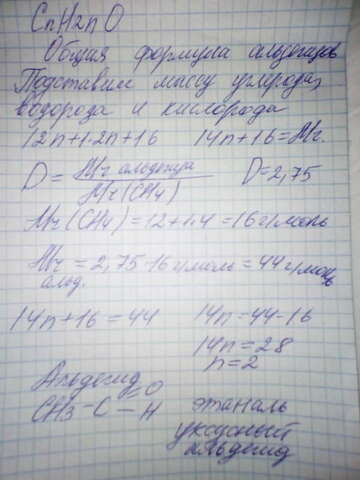 CnH2nO
Общая формула альдегидов
Подставим массу углерода,
водорода и кислорода
12n+1·2n+16 14n+16=Mr.
D = Mr альдегида / Mr(CH4) D=2,75
Mr(CH4)=12+1·4=16г/моль
Mr альд. = 2,75·16г/моль=44г/моль
14n+16=44 14n=44-16
14n=28
n=2
Альдегид
CH3-C=O-H этаналь
уксусный
альдегид